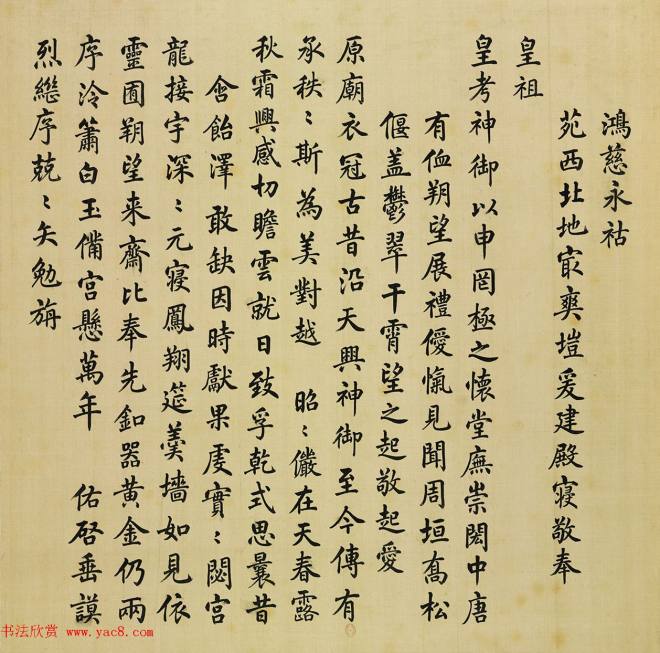 鴻慈永祜
苑西北地㝡爽塏爰建殿寝敬奉
皇祖
皇考神御以申罔極之懷堂廡崇閎中唐
有侐朔望展禮優愾見聞周垣喬松
偃盖鬱翠干霄望之起敬起愛
原廟衣冠古昔沿天興神御至今傳有
承秩〻斯為美對越 昭〻儼在天春露
秋霜興感切瞻雲就日致孚乾式思曩昔
含飴澤敢缺因時獻果虔實〻閟宮
龍接宇深〻元寝鳳翔筵羹墻如見依
靈囿朔望来齋比奉先釦器黄金仍兩
序泠簫白玉備宫懸萬年 佑啓垂謨
烈繼序兢〻矢勉旃
书法欣赏 www.yac8.com